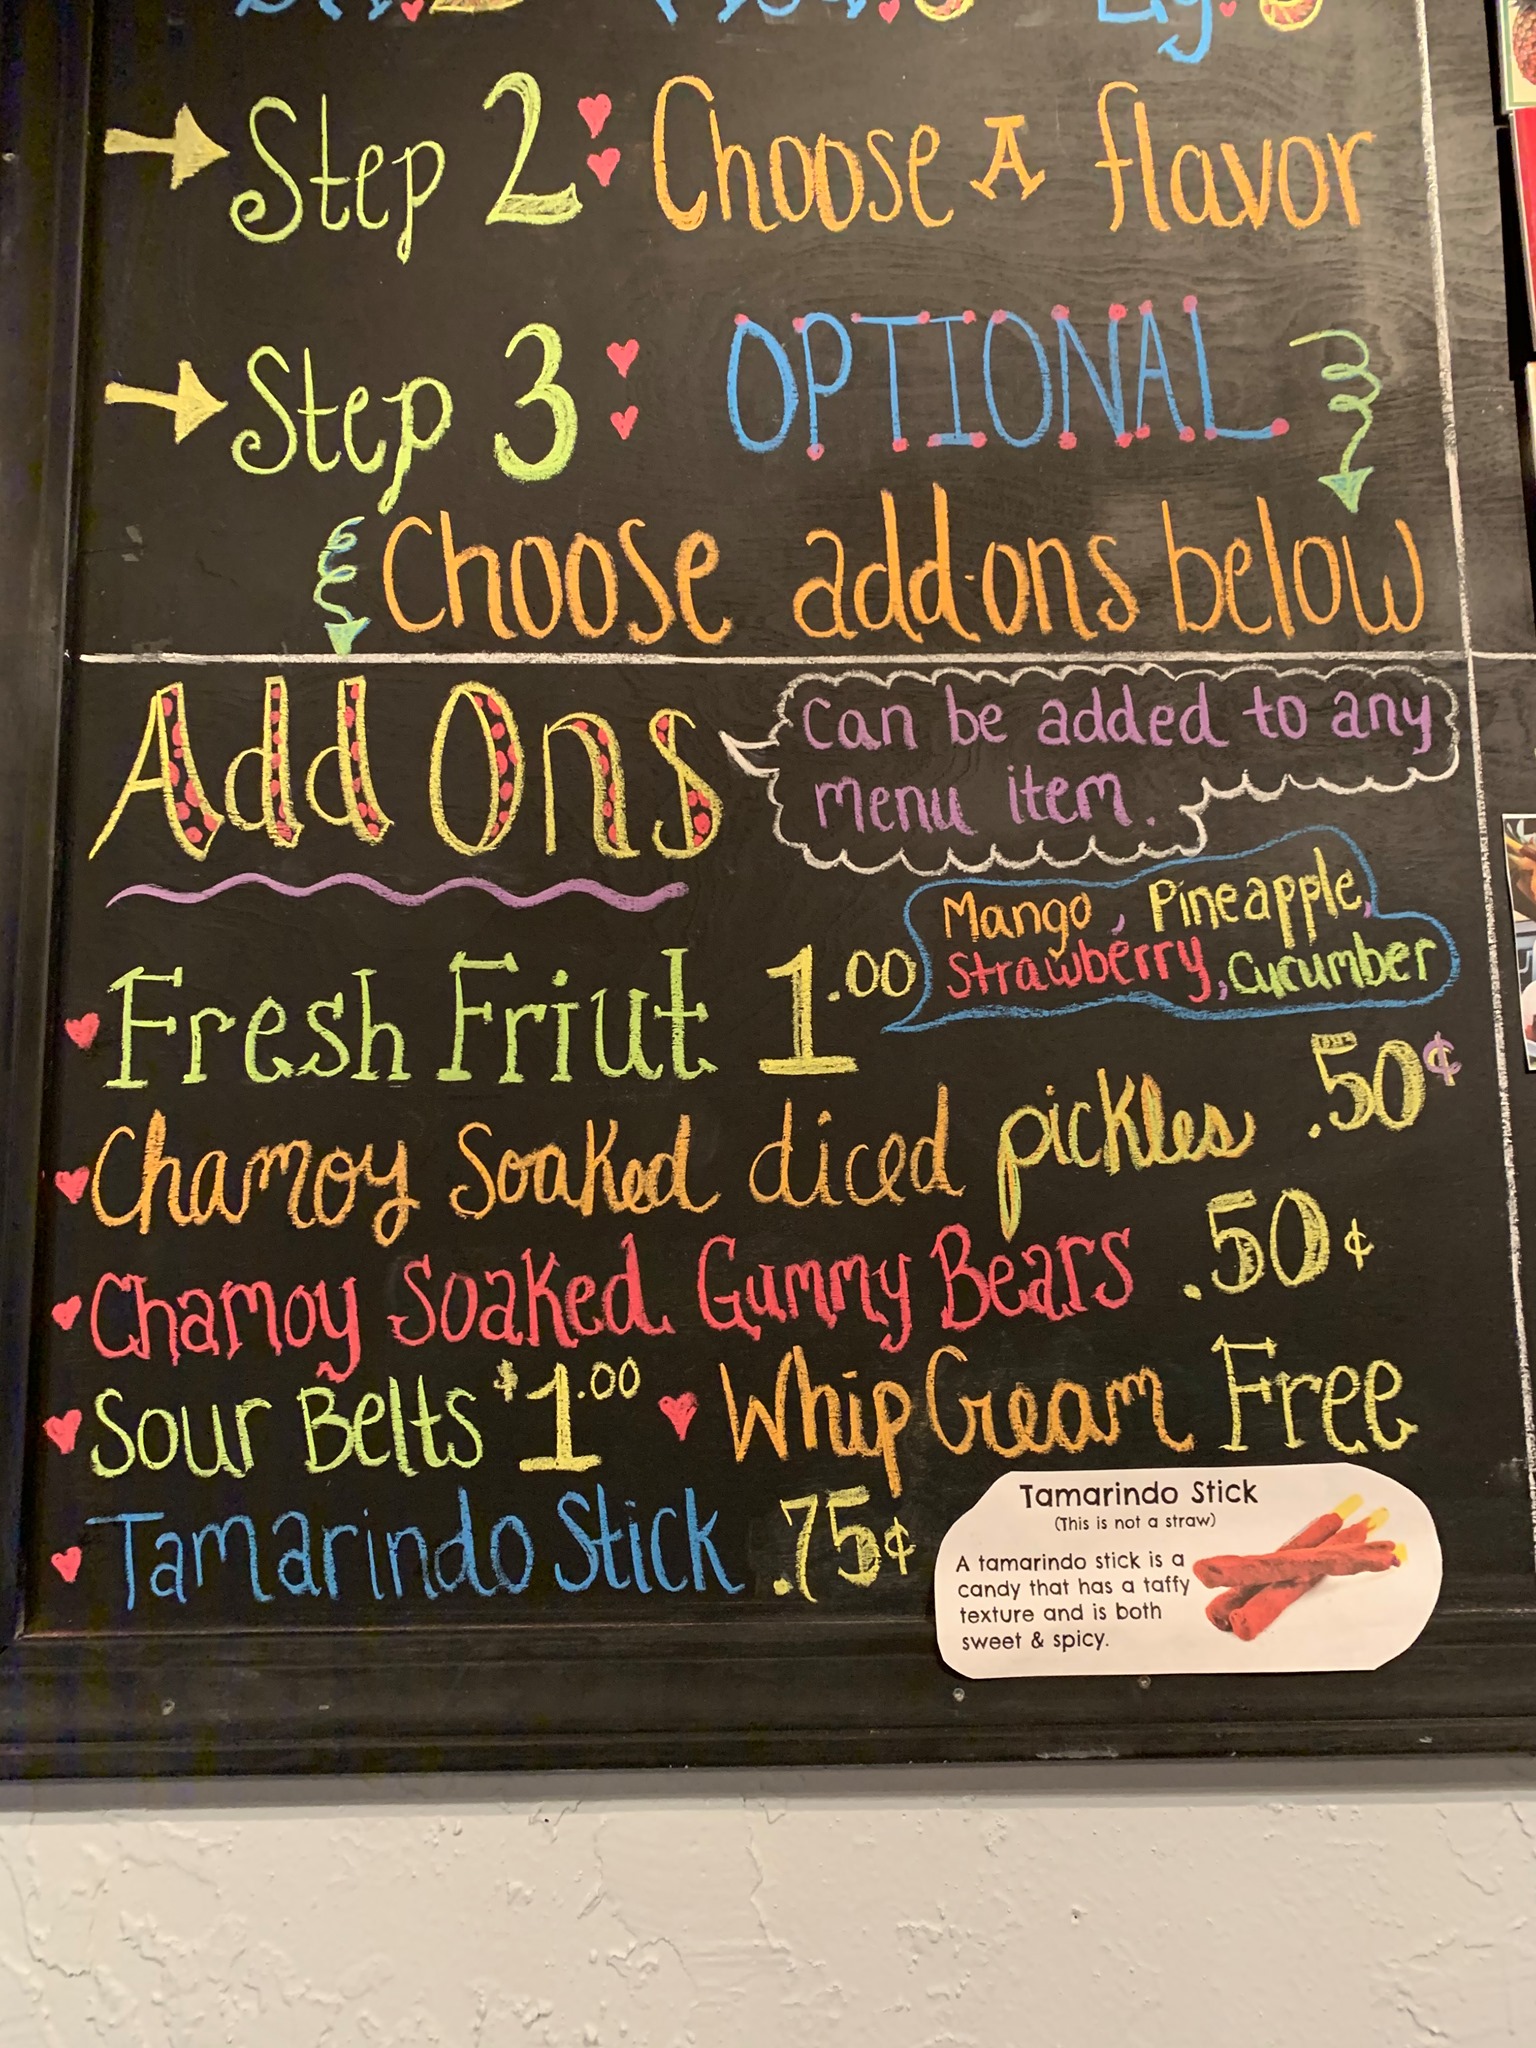 Step 2: Choose A flavor
Step 3: OPTIONAL
Choose add-ons below
Add Ons
Can be added to any
menu item.
Fresh Friut 1.00
Mango, Pineapple,
Strawberry, Cucumber
Chamoy Soaked diced pickles .50¢
Chamoy Soaked Gummy Bears .50¢
Sour Belts $1.00 Whip Cream Free
Tamarindo Stick .75¢
Tamarindo Stick
(This is not a straw)
A tamarindo stick is a
candy that has a taffy
texture and is both
sweet & spicy.